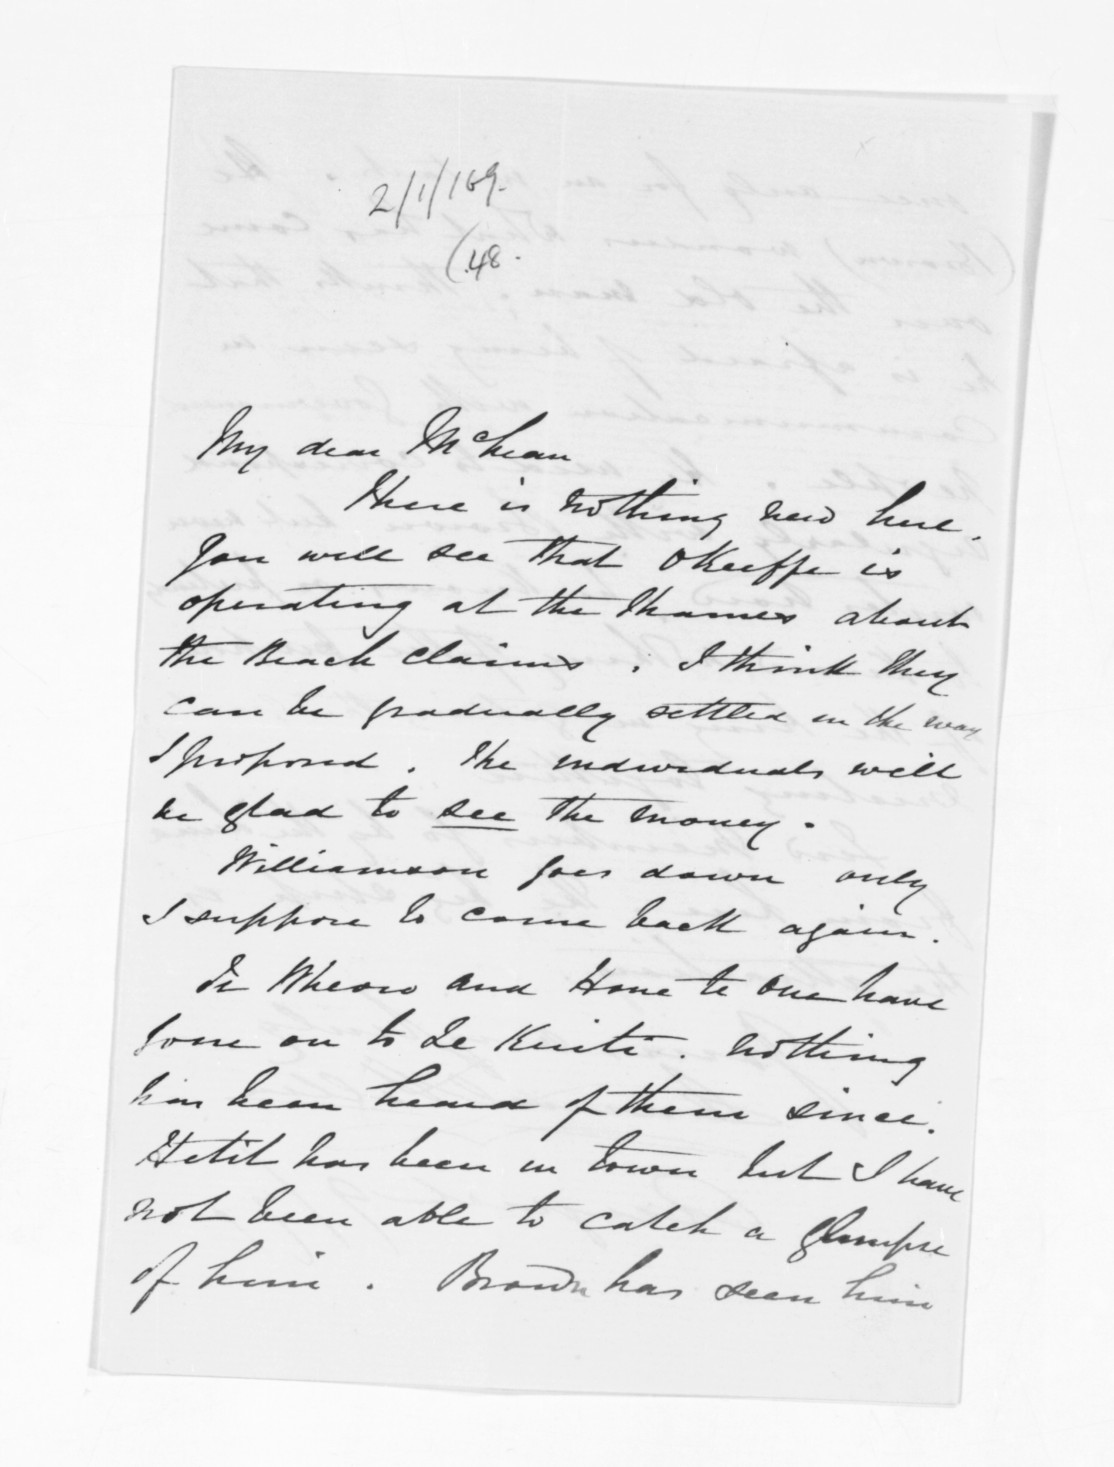 2/1/169.
(.48.
My dear McLean
There is nothing new here.
You will see that OKeeffe is
operating at the Thames about
the Beach claims. I think they
can be gradually settled in the way
I proposed. The individuals will
be glad to see the money.
Williamson goes down only
I suppose to come back again.
Te Wheoro and Hone te One have
gone on to Te Kuiti. Nothing
has been heard of them since.
Hetit has been in town but I have
not been able to catch a glimpse
of him. Brown has seen him